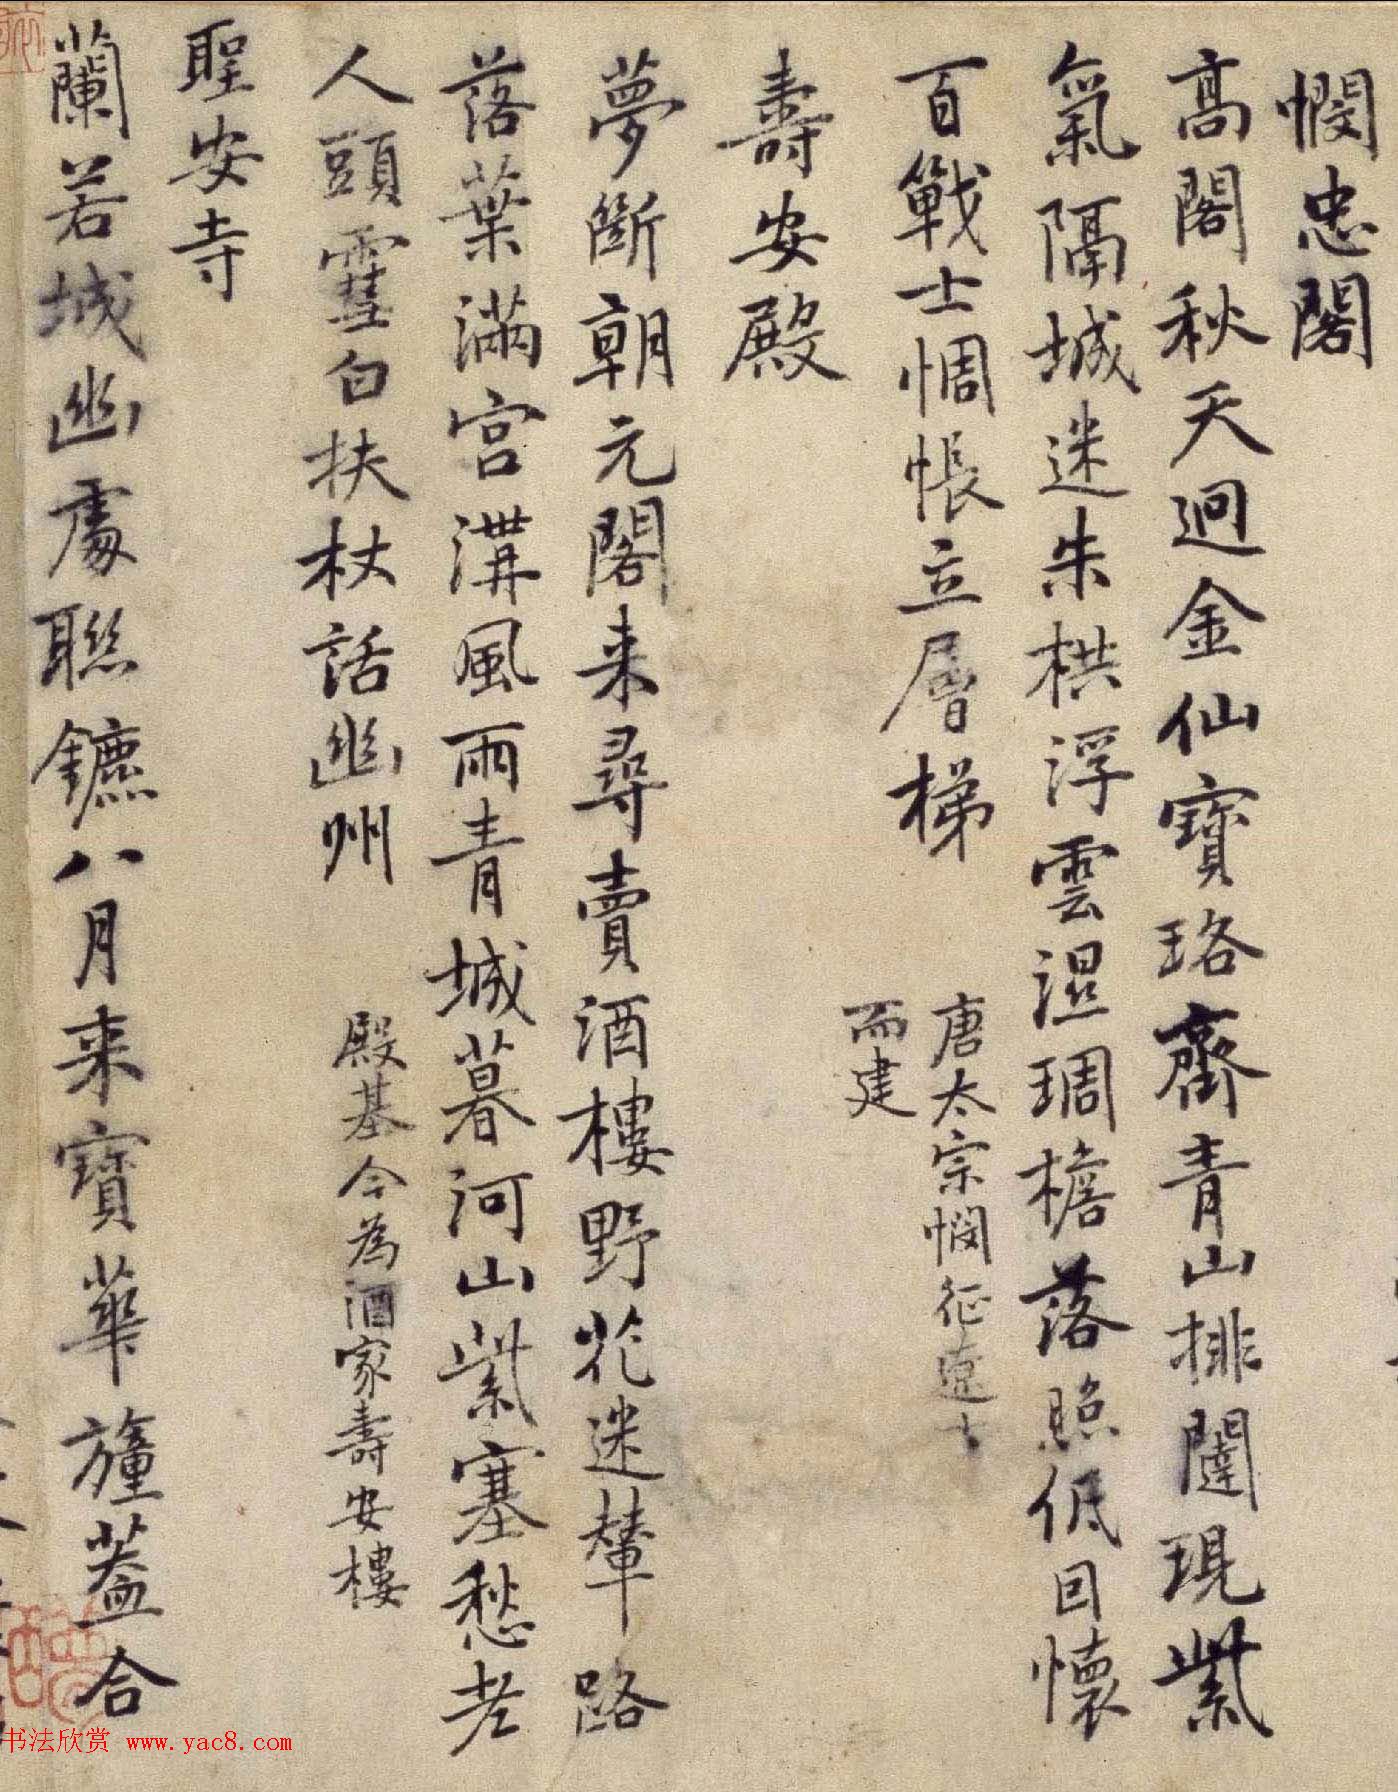 憫忠閣
髙閣秋天迥金仙寶珞齊青山排闥現紫
氣隔城迷朱栱浮雲濕琱檐落照低回懷
百戰士惆悵立層梯
唐太宗憫征遼士
而建
壽安殿
夢斷朝元閣来尋賣酒樓野花迷輦路
落葉滿宮溝風雨青城暮河山紫塞愁老
人頭雪白扶杖話幽州
殿基今為酒家壽安樓
聖安寺
蘭若城幽處聯鑣八月来寶華幢蓋合
书法欣赏 www.yac8.com